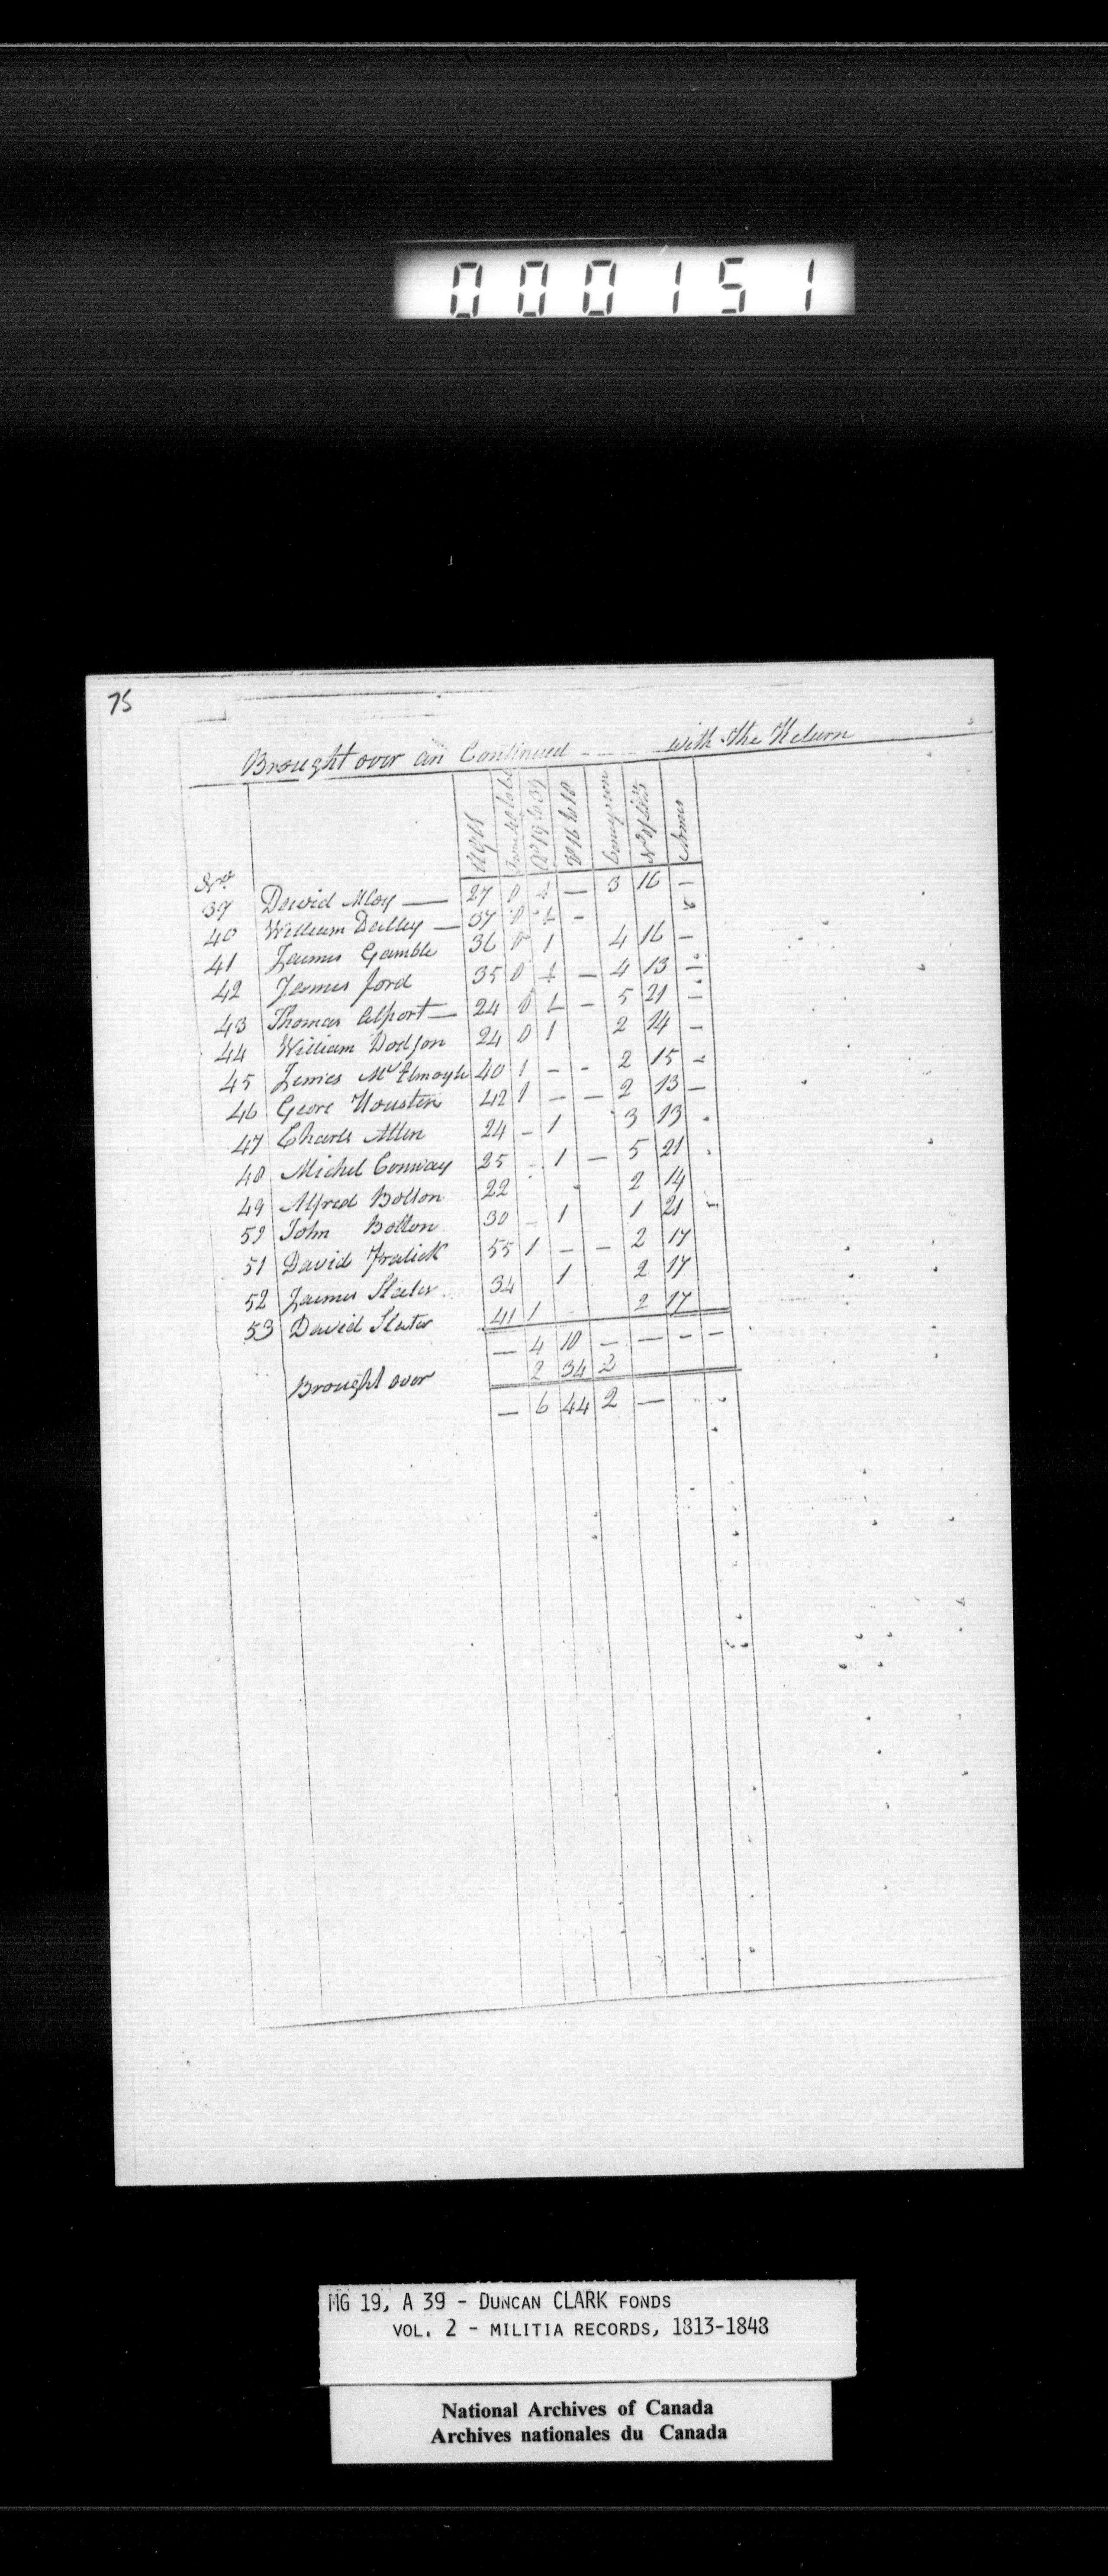 000151
75
Brought over an Continued with the Return
No Ages From 40 to 60 Do 19 to 39 Do 16 to 18 Concession No of Lots Arms
39 David Mloy — 27 0 1 — 3 16 —
40 William Dailly — 37 0 1 -
41 James Gamble 36 0 1 4 16 —
42 James ford 35 0 1 — 4 13 —
43 Thomas Alport — 24 0 1 - 5 21 —
44 William Dodson 24 0 1 2 14 —
45 James Mc Elmoyle 40 1 - - 2 15 -
46 Geore Housten 42 1 — — 2 13 —
47 Charls Allen 24 - 1 3 13
48 Michel Conway 25 1 — 5 21
49 Alfred Bolton 22 2 14
50 John Bolton 30 - 1 1 21
51 David Fralick 55 1 — — 2 17
52 James Slater 34 1 2 17
53 David Slater 41 1 2 17
— 4 10 — — - —
Brought over 2 34 2
— 6 44 2 —
MG 19, A 39 - DUNCAN CLARK FONDS
VOL. 2 - MILITIA RECORDS, 1813-1848
National Archives of Canada
Archives nationales du Canada